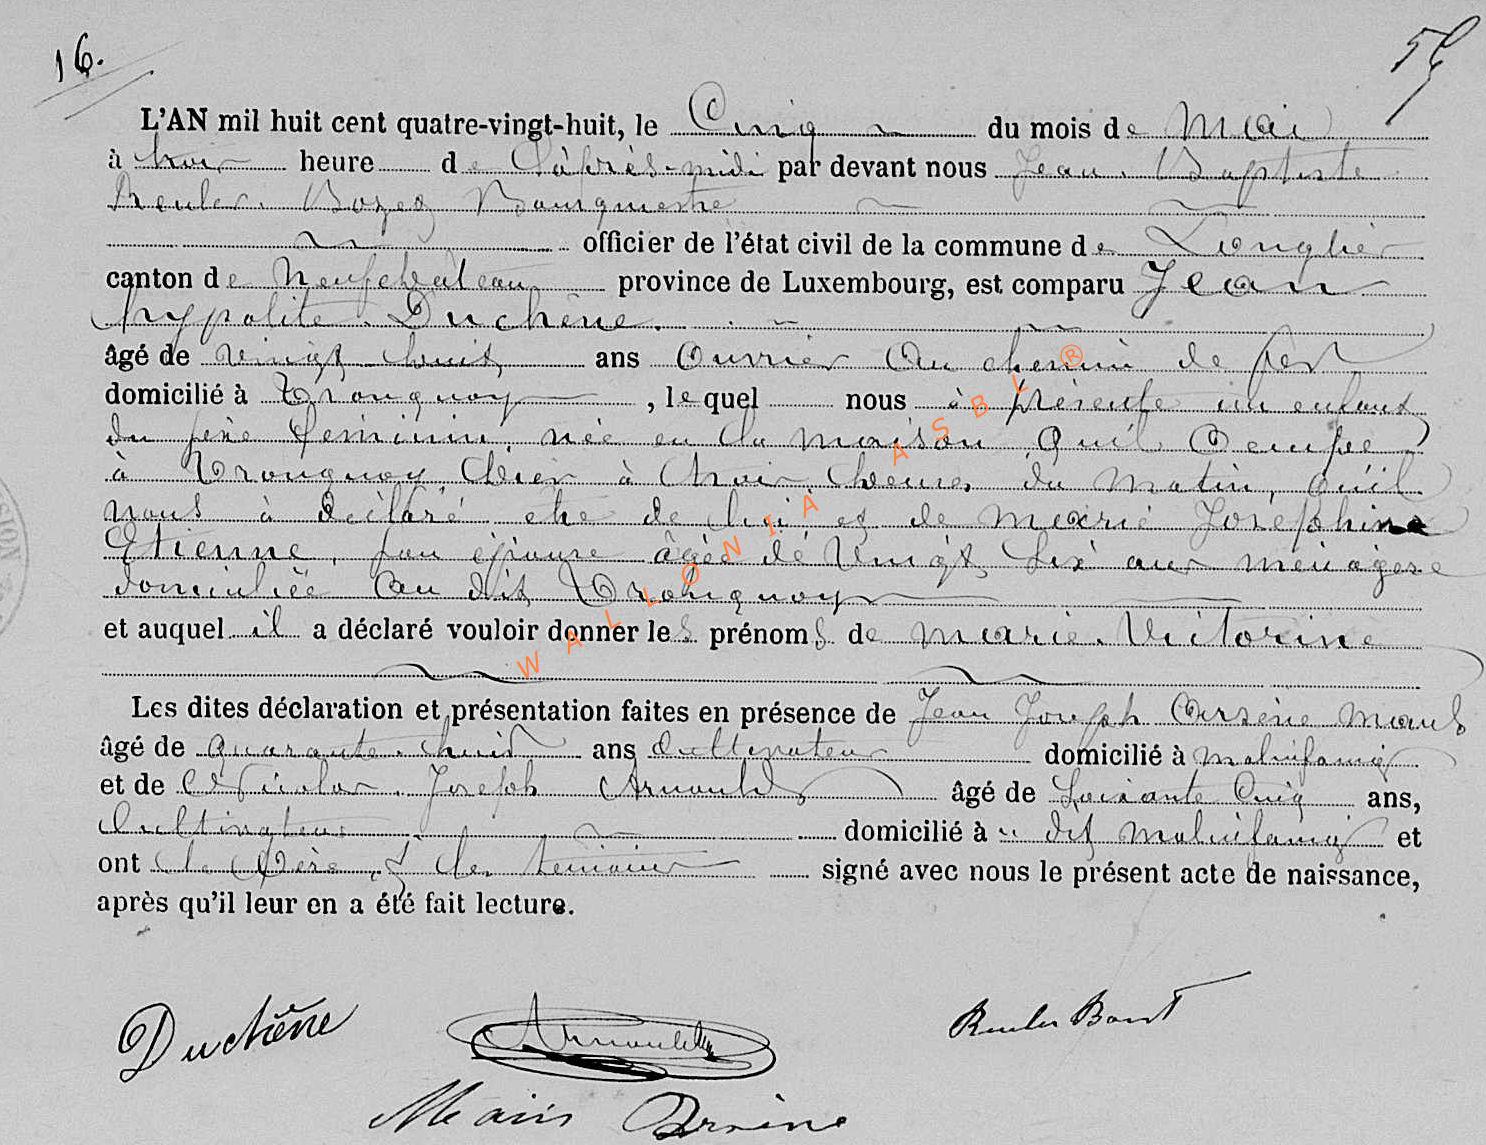 16.
L'AN mil huit cent quatre-vingt-huit, le Cinq du mois de Mai
à trois heure de l'après-midi par devant nous Jean Baptiste
Bourgmestre
officier de l'état civil de la commune de Longlier
canton de Neufchâteau province de Luxembourg, est comparu Jean
hypolite Duchène.
âgé de vingt huit ans Ouvrier au chemin de fer
domicilié à Tronquoy, lequel nous à présenté un enfant
du sexe féminin, née en la maison qu'il Occupe
à Tronquoy hier à trois heures du matin, qu'il
nous à déclaré être de lui et de marie Joséphine
Etienne, son épouse âgée de vingt six ans ménagère
domiciliée au dit Tronquoy
et auquel il a déclaré vouloir donner les prénoms de marie Victorine
Les dites déclaration et présentation faites en présence de Jean Joseph Arsène
âgé de quarante huit ans Cultivateur domicilié à
et de Nicolas Joseph Arnould âgé de Soixante Cinq ans,
Cultivateur domicilié à dit et
ont le Père et les témoins signé avec nous le présent acte de naissance,
après qu'il leur en a été fait lecture.
WALLONIA ASBL ®
Duchène Arnould
Arsène